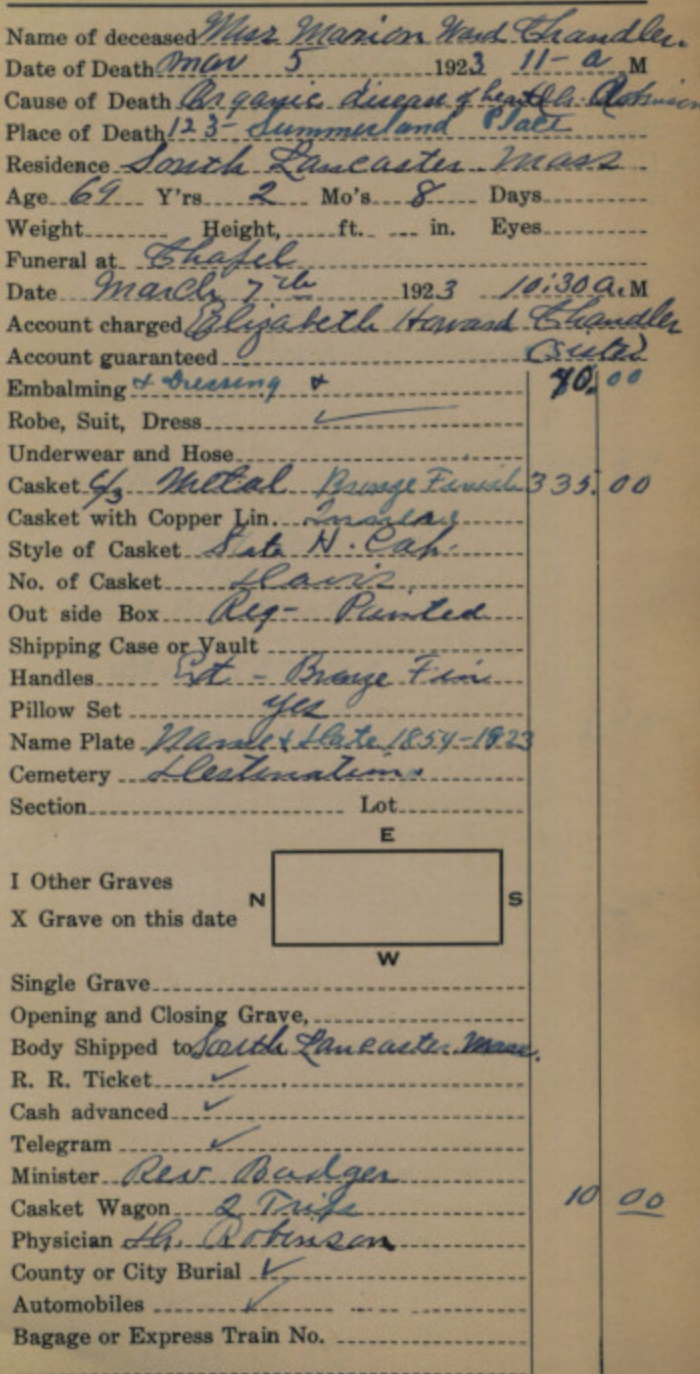 Name of deceased Miss Marion Ward Chandler
Date of Death Mar 5 1923 11- a M
Cause of Death Organic disease of heart Dr. Robinson
Place of Death 123- Summerland Place
Residence South Lancaster Mass
Age 69 Y'rs 2 Mo's 8 Days
Weight Height, ft. in. Eyes
Funeral at Chapel
Date March 7th 1923 10:30 a.M
Account charged Elizabeth Howard Chandler
Account guaranteed (Sister)
Embalming & Dressing 00
Robe, Suit, Dress ✓
Underwear and Hose
Casket Metal Bronze Finish 335. 00
Casket with Copper Lin.
Style of Casket State
No. of Casket Davis
Out side Box Reg- Painted
Shipping Case or Vault
Handles Ext - Bronze Fin
Pillow Set yes
Name Plate Name & Date 1854-1923
Cemetery Destination
Section Lot
E
I Other Graves
N S
X Grave on this date
W
Single Grave
Opening and Closing Grave,
Body Shipped to South Lancaster Mass.
R. R. Ticket ✓
Cash advanced ✓
Telegram ✓
Minister Rev Badger
Casket Wagon 2 Trips 10 00
Physician Dr. Robinson
County or City Burial ✓
Automobiles ✓
Bagage or Express Train No.